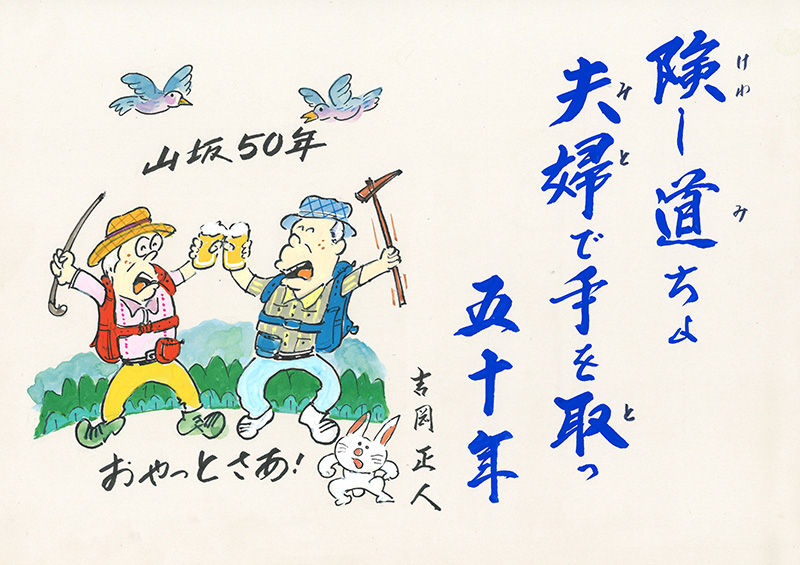 険し道ちょ
けわ み
夫婦で手を取っ
みと と
五十年
山坂50年
おやっとさあ!
吉岡正人